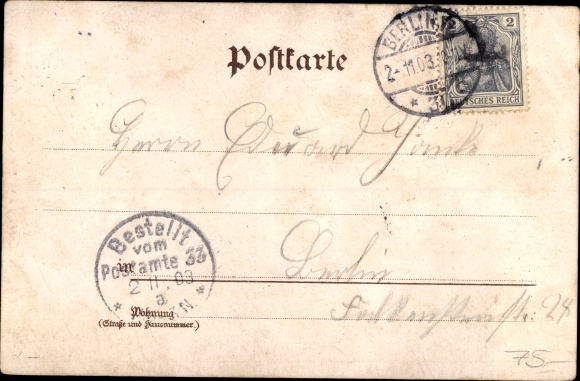 Postkarte
BERLIN
2-11.03.
* 33
2
DEUTSCHES REICH
Herrn Eduard
Bestellt
vom
Postamte 33
2 11 03
a.
in
Berlin
Wohnung
(Straße und Hausnummer.)
24
75-